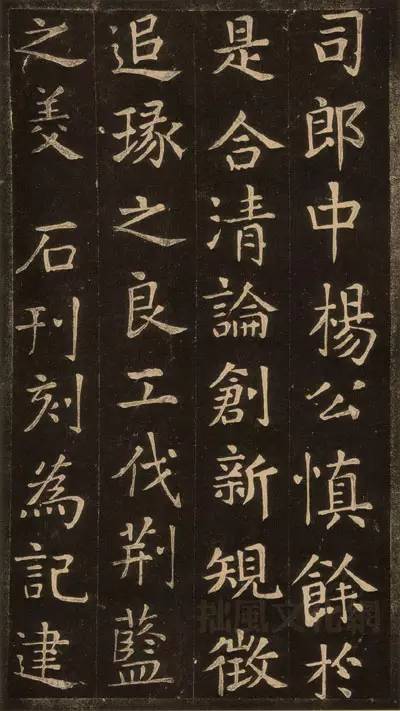 司郎中楊公慎餘於
是合清論創新規徵
追琢之良工伐荆藍
之美石刊刻為記建
拙風文化網